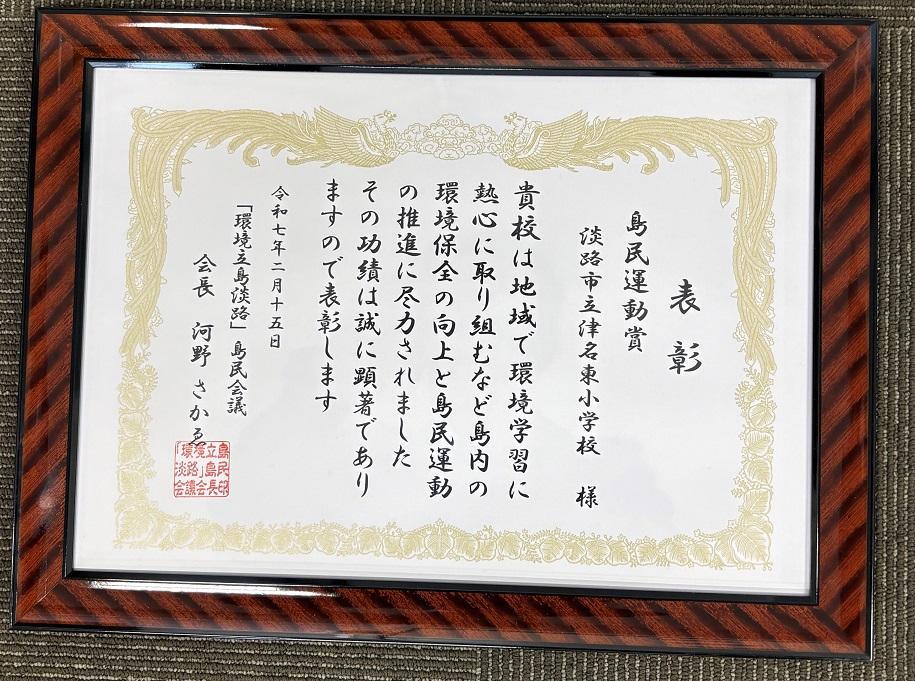 表彰
島民運動賞
淡路市立津名東小学校 様
貴校は地域で環境学習に
熱心に取り組むなど島内の
環境保全の向上と島民運動
の推進に尽力されました
その功績は誠に顕著であり
ますので表彰します
令和七年二月十五日
「環境立島淡路」島民会議
会長 河野 さかゑ
「環境立島
淡路」島民
会議会長印